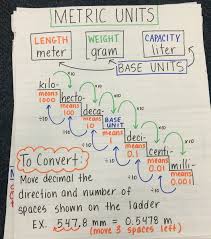 METRIC UNITS
LENGTH WEIGHT CAPACITY
meter gram liter
BASE UNITS
kilo- means 1000
hecto- means 100
deca- means 10
BASE UNIT means 1
deci- means 0.1
centi- means 0.01
milli- means 0.001
x10 x10 x10 x10 x10 x10
÷10 ÷10 ÷10 ÷10 ÷10 ÷10
To Convert:
Move decimal the
direction and number of
spaces shown on the ladder
EX: 547.8 mm = 0.5478 m
(move 3 spaces left)